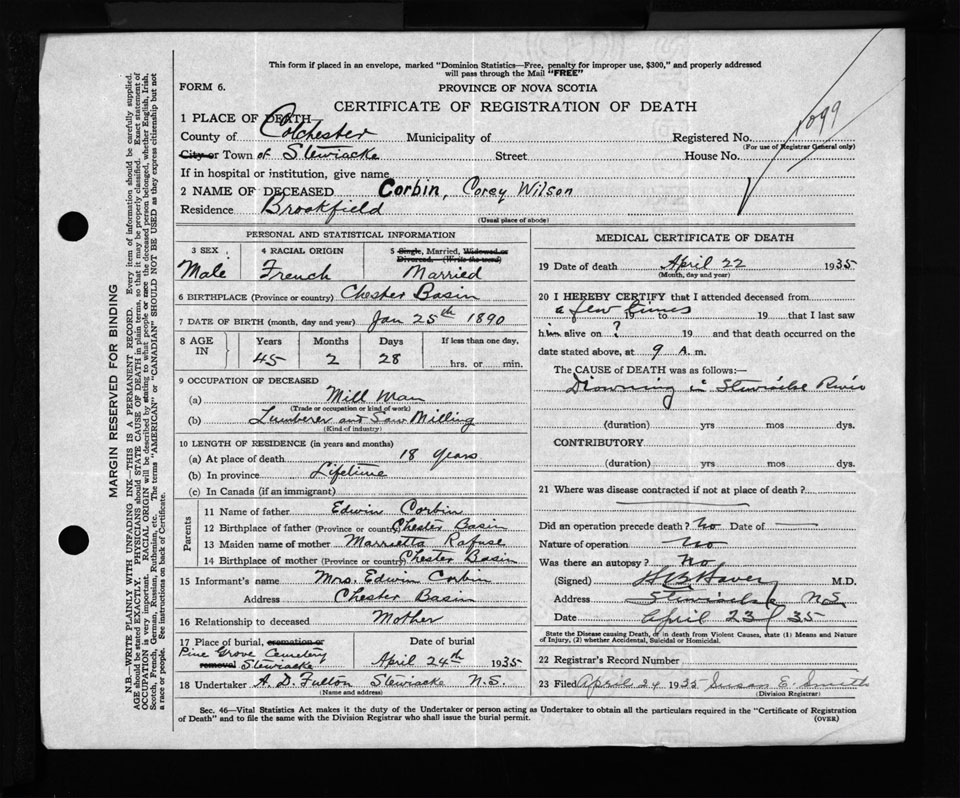 This form if placed in an envelope, marked "Dominion Statistics—Free, penalty for improper use, $300," and properly addressed
will pass through the Mail "FREE"
FORM 6.
PROVINCE OF NOVA SCOTIA
CERTIFICATE OF REGISTRATION OF DEATH
1 PLACE OF DEATH
County of Colchester Municipality of Registered No. 1099
(For use of Registrar General only)
City or Town of Stewiacke Street House No.
If in hospital or institution, give name
2 NAME OF DECEASED Corbin, Corey Wilson
Residence Brookfield
(Usual place of abode)
PERSONAL AND STATISTICAL INFORMATION
3 SEX 4 RACIAL ORIGIN 5 Single, Married, Widowed or
Divorced. (Write the word)
Male French Married
6 BIRTHPLACE (Province or country) Chester Basin
7 DATE OF BIRTH (month, day and year) Jan 25th 1890
8 AGE IN Years Months Days If less than one day,
45 2 28 hrs. or min.
9 OCCUPATION OF DECEASED
(a) Mill Man
(Trade or occupation or kind of work)
(b) Lumberer and Saw Milling
(Kind of industry)
10 LENGTH OF RESIDENCE (in years and months)
(a) At place of death 18 years
(b) In province Lifetime
(c) In Canada (if an immigrant)
Parents
11 Name of father Edwin Corbin
12 Birthplace of father (Province or country) Chester Basin
13 Maiden name of mother Marrietta Rafuse
14 Birthplace of mother (Province or country) Chester Basin
15 Informant's name Mrs. Edwin Corbin
Address Chester Basin
16 Relationship to deceased Mother
17 Place of burial, cremation or Date of burial
Pine Grove Cemetery
removal Stewiacke April 24th 1935
18 Undertaker A. D. Fulton Stewiacke N.S.
(Name and address)
MEDICAL CERTIFICATE OF DEATH
19 Date of death April 22 1935
(Month, day and year)
20 I HEREBY CERTIFY that I attended deceased from
a few times 19 to 19 that I last saw
him alive on ? 19 and that death occurred on the
date stated above, at 9 A. m.
The CAUSE OF DEATH was as follows:—
Drowning in Stewiacke River
(duration) yrs mos dys.
CONTRIBUTORY
(duration) yrs mos dys.
21 Where was disease contracted if not at place of death?
Did an operation precede death? No Date of —
Nature of operation No
Was there an autopsy? No
(Signed) M.D.
Address Stewiacke N.S
Date April 23/35
State the Disease causing Death, or in death from Violent Causes, state (1) Means and Nature
of Injury, (2) whether Accidental, Suicidal or Homicidal.
22 Registrar's Record Number
23 Filed April 24 1935 Susan E. Smith
(Division Registrar)
Sec. 46—Vital Statistics Act makes it the duty of the Undertaker or person acting as Undertaker to obtain all the particulars required in the "Certificate of Registration
of Death" and to file the same with the Division Registrar who shall issue the burial permit.
(OVER)
MARGIN RESERVED FOR BINDING
N.B.—WRITE PLAINLY WITH UNFADING INK—THIS IS A PERMANENT RECORD. Every item of information should be carefully supplied.
AGE should be stated EXACTLY. PHYSICIANS should STATE CAUSE OF DEATH in plain terms, so that it may be properly classified. Exact statement of
OCCUPATION is very important. RACIAL ORIGIN will be described by stating to what people or race the deceased person belonged, whether English, Irish,
Scotch, French, German, Russian, Ruthenian, etc. The terms "AMERICAN" or "CANADIAN" SHOULD NOT BE USED as they express citizenship but not
a race or people. See instructions on back of Certificate.